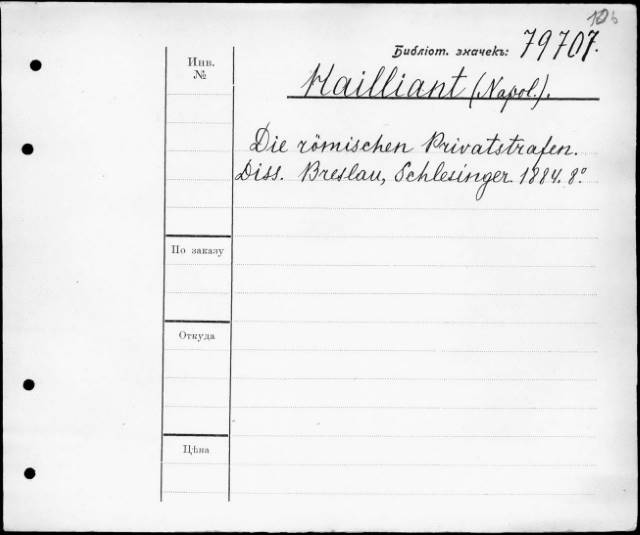 126
Библіот. значекъ: 79707.
Инв.
№
Hailliant (Napol.).
Die römischen Privatstrafen.
Diss. Breslau, Schlesinger 1884. 8º
По заказу
Откуда
Цѣна